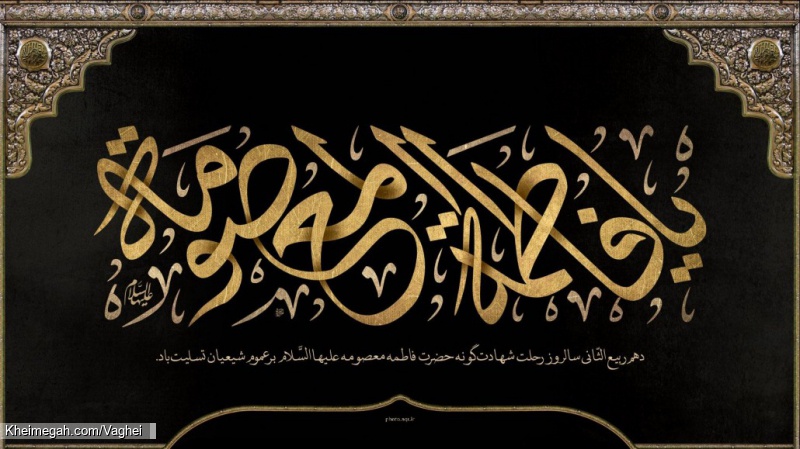 یا فاطمة المعصومة
علیها السلام
دهم ربیع الثانی سالروز رحلت شهادت‌گونه حضرت فاطمه معصومه علیها السَّلام بر عموم شیعیان تسلیت باد.
Kheimegah.com/Vaghei